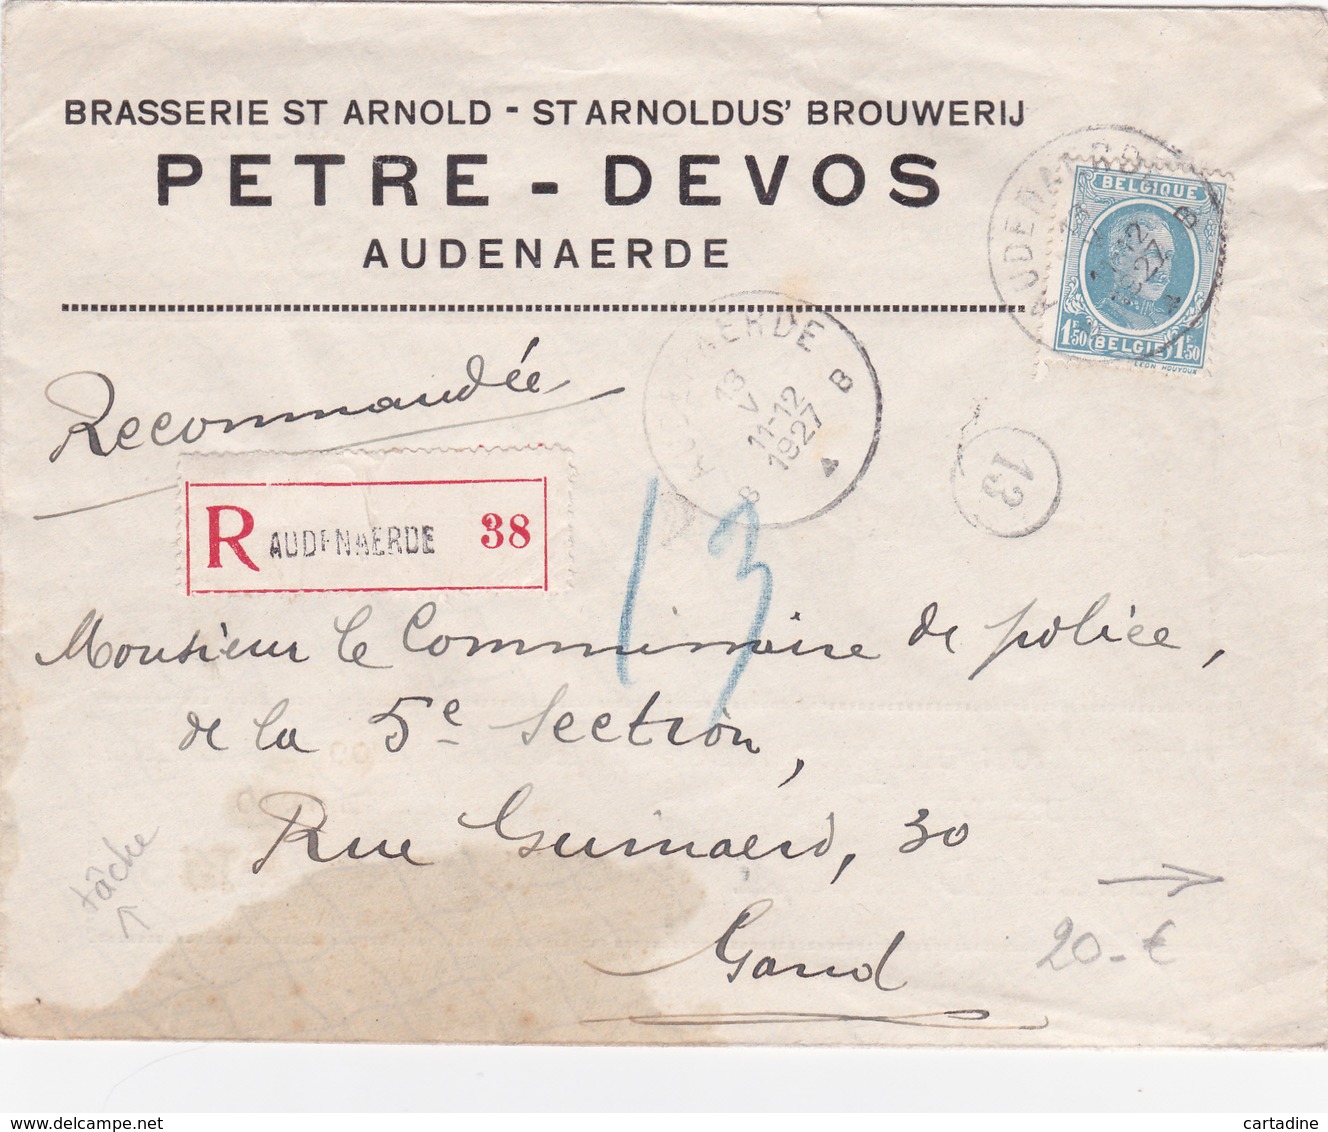 BRASSERIE ST ARNOLD - ST ARNOLDUS' BROUWERIJ
PETRE - DEVOS
AUDENAERDE
BELGIQUE
1F50 BELGIE 1F50
LEON HOUYOUX
AERDE
13
V
11-12
1927
B
B
Recommandée
13
R AUDENAERDE 38
13
Monsieur le Commissaire de police,
de la 5e Section,
Rue Guinaerd, 30
Gand
tâche
20.-€
delcampe.net
cartadine